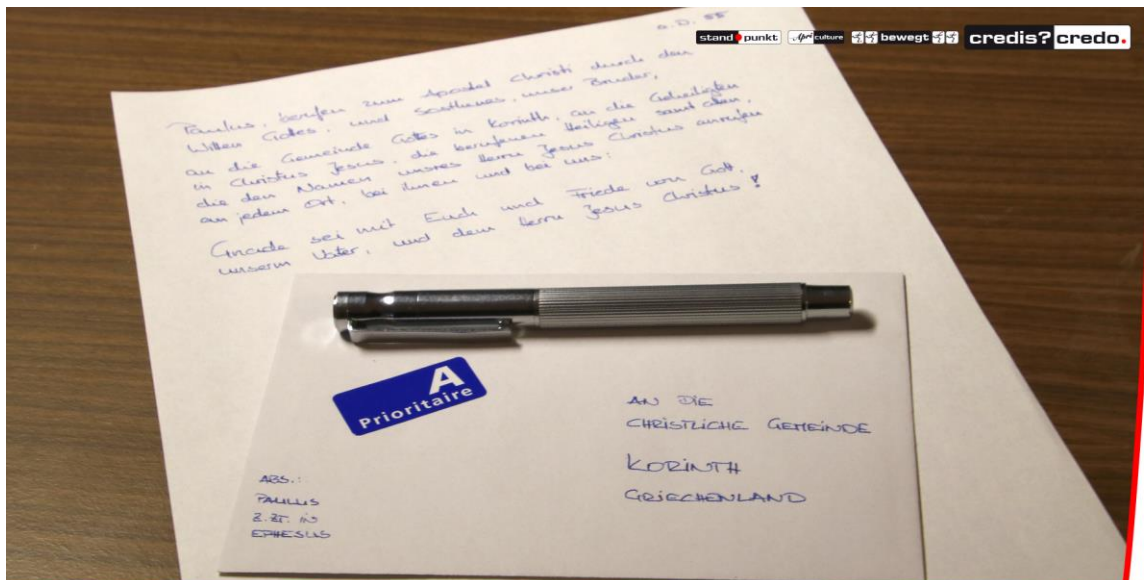 stand punkt Apéro culture bewegt credis? credo.
a. D. 55
Paulus, berufen zum Apostel Christi durch den
Willen Gottes, und Sosthenes, unser Bruder,
an die Gemeinde Gottes in Korinth, an die Geheiligten
in Christus Jesus, die berufenen Heiligen samt allen,
die den Namen unsres Herrn Jesus Christus anrufen
an jedem Ort, bei ihnen und bei uns:
Gnade sei mit Euch und Friede von Gott,
unserm Vater, und dem Herrn Jesus Christus!
A
Prioritaire
AN DIE
CHRISTLICHE GEMEINDE
KORINTH
GRIECHENLAND
ABS.:
PAULUS
Z.ZT. IN
EPHESUS